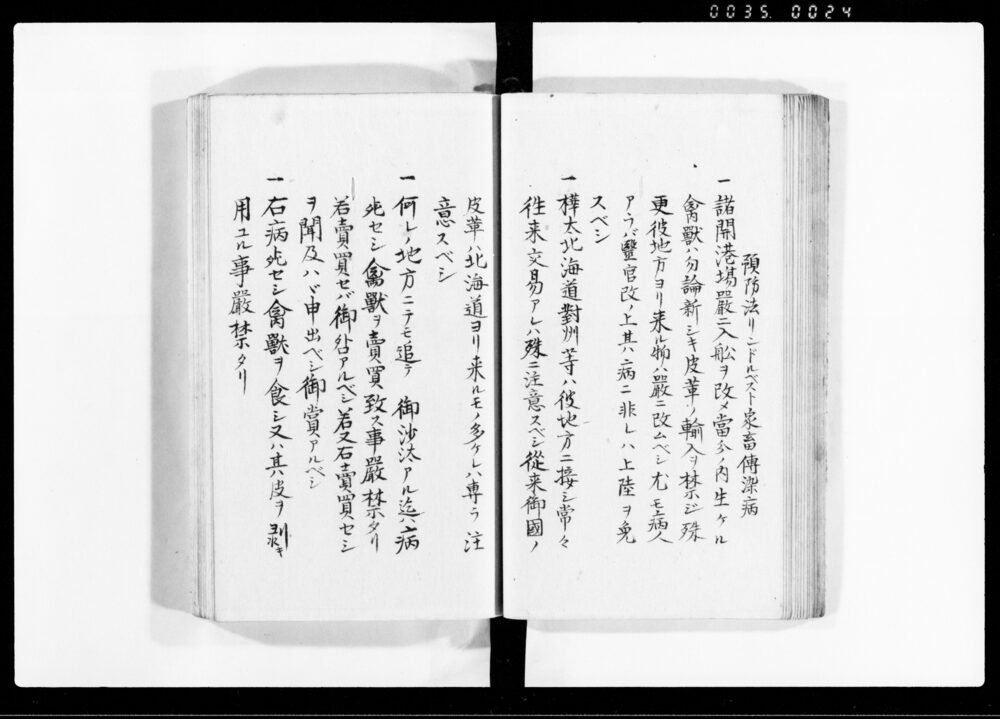 0035. 0024
預防法リンドルベスト家畜傳染病
一諸開港場嚴ニ入舩ヲ改メ當分ノ内生ケル
禽獸ハ勿論新シキ皮革ノ輸入ヲ禁ジ殊
更彼地方ヨリ来ル物ハ嚴ニ改ムベシ尤モ病人
アラバ豎官改ノ上其ハ病ニ非レハ上陸ヲ免
スベシ
一樺太北海道對州等ハ彼地方ニ接シ常々
徃来交易アレハ殊ニ注意スベシ從来御國ノ
皮革ハ北海道ヨリ来ルモノ多ケレハ専ラ注
意スベシ
一何レノ地方ニテモ追テ 御沙汰アル迄ハ病
死セシ禽獸ヲ賣買致ス事嚴禁タリ
若賣買セバ御咎アルベシ若又右賣買セシ
ヲ聞及ハヾ申出ベシ御賞アルベシ
一右病死セシ禽獸ヲ食シ又ハ其皮ヲ剥キ
用ユル事嚴禁タリ